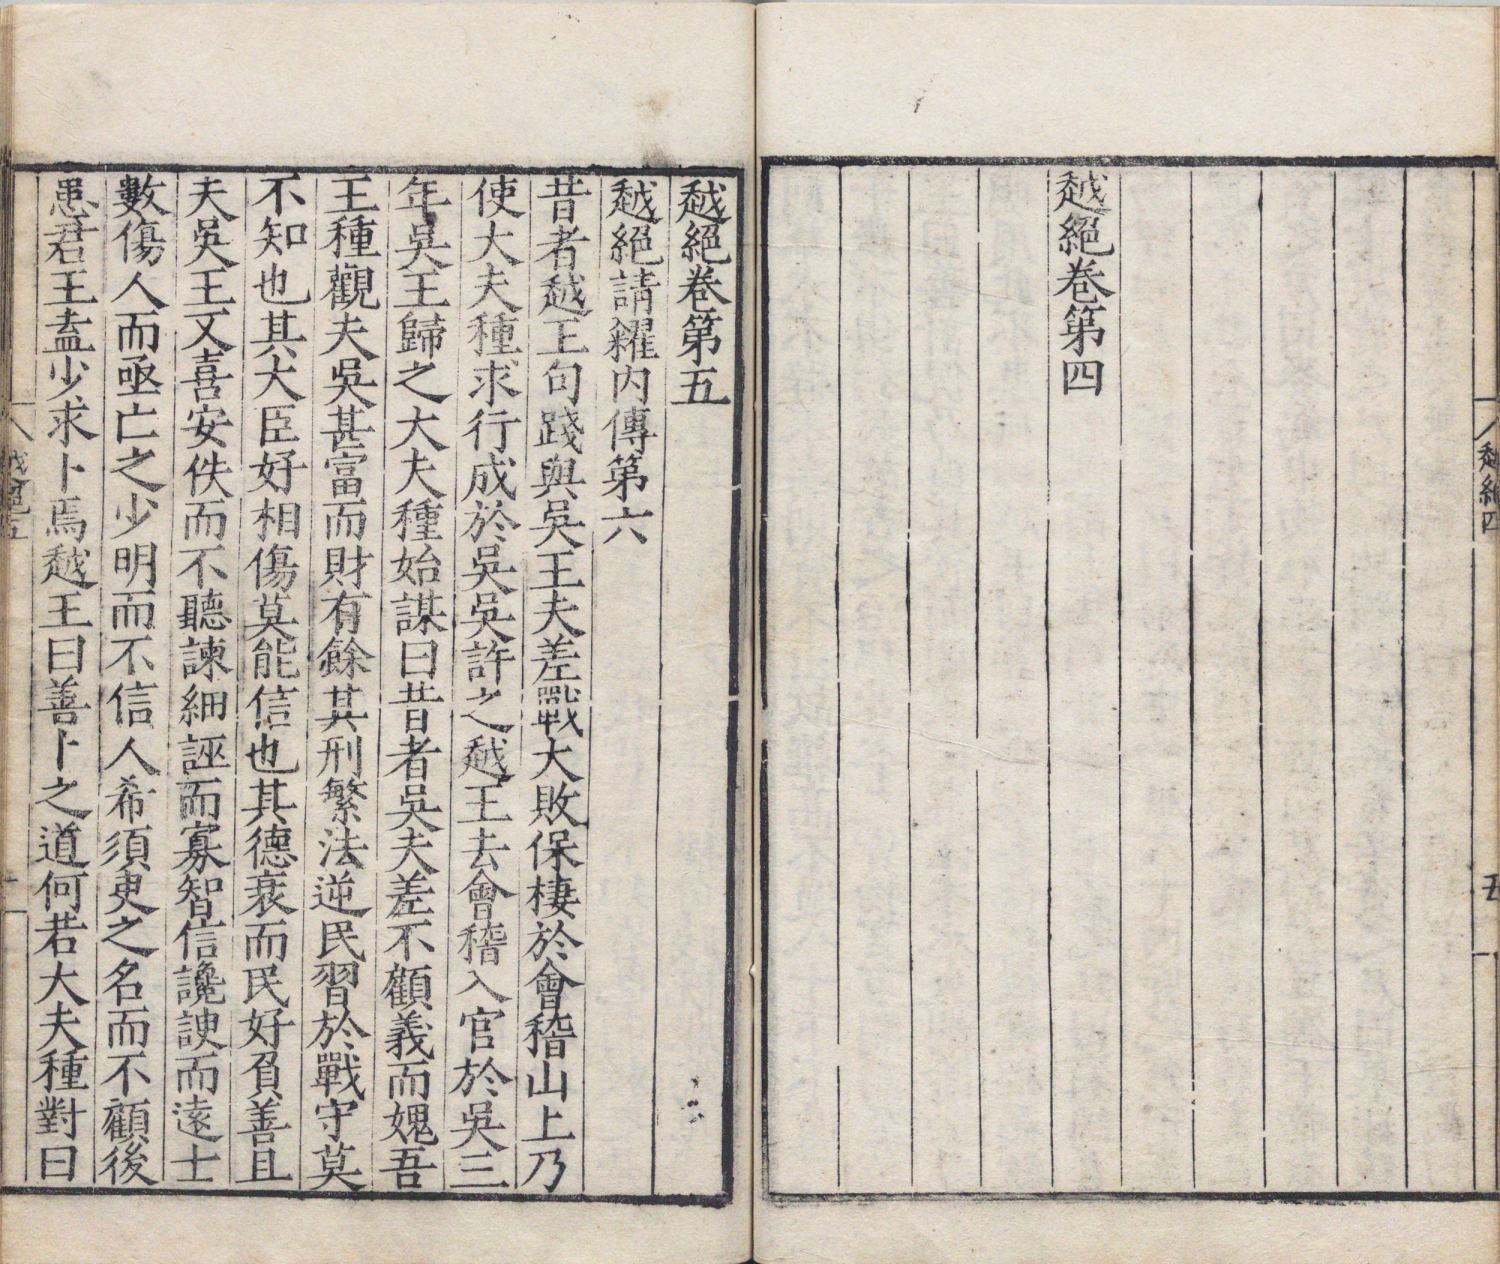 越絕四
五
越絕卷第四
越絕卷第五
越絕請糴内傳第六
昔者越王句踐與吳王夫差戰大敗保棲於會稽山上乃
使大夫種求行成於吳吳許之越王去會稽入官於吳三
年吳王歸之大夫種始謀曰昔者吳夫差不顧義而媿吾
王種觀夫吳甚富而財有餘其刑繁法逆民習於戰守莫
不知也其大臣好相傷莫能信也其德衰而民好負善且
夫吳王又喜安佚而不聽諫細誣而寡智信讒諛而遠士
數傷人而亟亡之少明而不信人希須臾之名而不顧後
患君王盍少求卜焉越王曰善卜之道何若大夫種對曰
越絕五